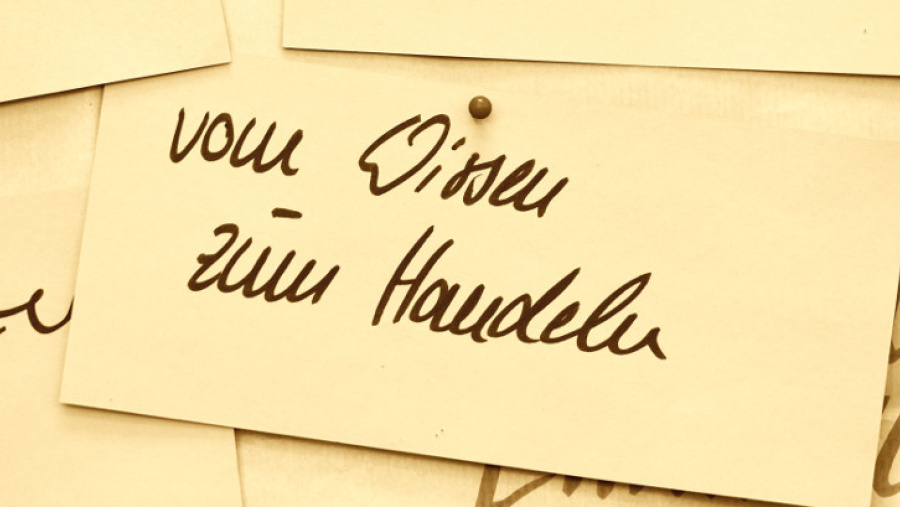 vom Wissen
zum Handeln